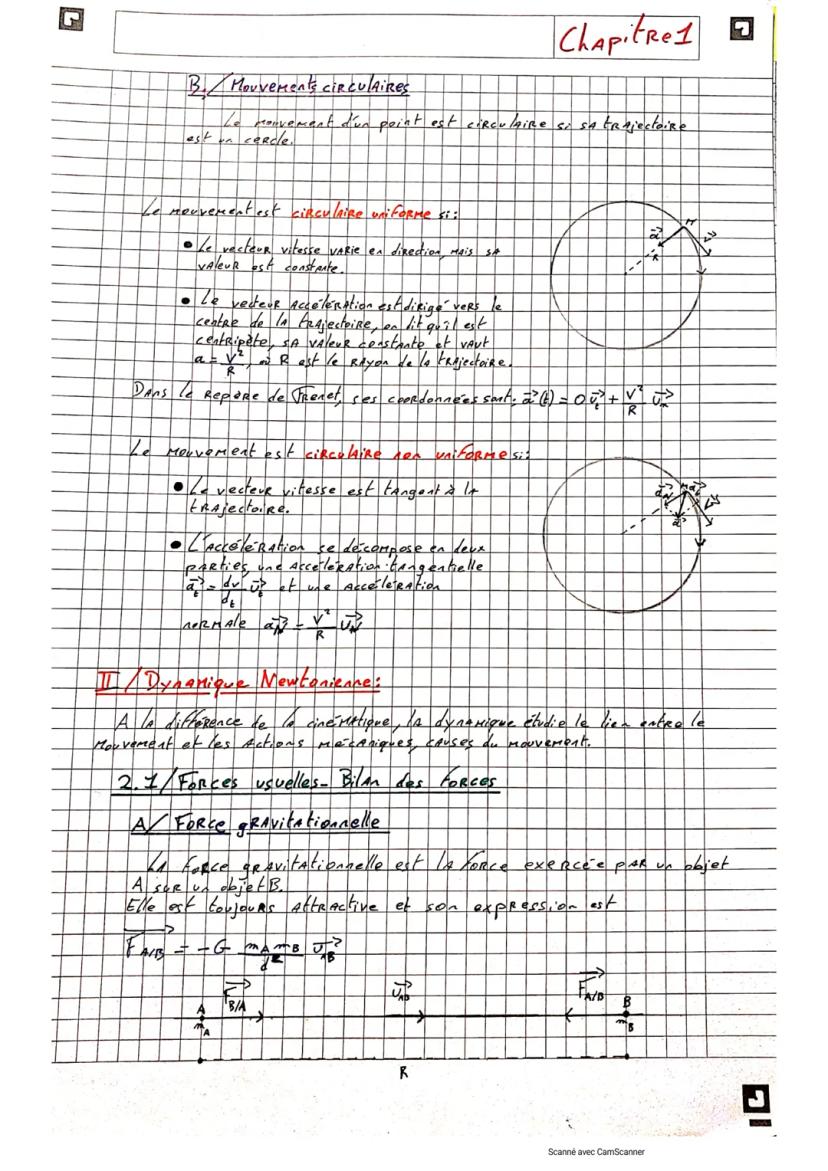 Chapitre 1
B/ Mouvements circulaires
Le mouvement d'un point est circulaire si sa trajectoire
est un cercle.
Le mouvement est circulaire uniforme si :
• Le vecteur vitesse varie en direction, mais sa
valeur est constante.
• Le vecteur accélération est dirigé vers le
centre de la trajectoire, on dit qu'il est
centripète, sa valeur constante et vaut
a = V²/R, où R est le rayon de la trajectoire.
M
a⃗
V⃗
R
Dans le repère de Frenet, ses coordonnées sont : a⃗(t) = 0 u⃗t + V²/R u⃗n
Le mouvement est circulaire non uniforme si :
• Le vecteur vitesse est tangent à la
trajectoire.
• L'accélération se décompose en deux
parties, une accélération tangentielle
a⃗t = dv/dt u⃗t et une accélération
normale a⃗N = V²/R u⃗N
M
a⃗N
a⃗t
V⃗
a⃗
II / Dynamique Newtonienne :
A la différence de la cinématique, la dynamique étudie le lien entre le
mouvement et les actions mécaniques, causes du mouvement.
2.1/ Forces usuelles - Bilan des forces
A/ Force gravitationnelle
La force gravitationnelle est la force exercée par un objet
A sur un objet B.
Elle est toujours attractive et son expression est
F⃗A/B = -G mA mB/d² U⃗AB
F⃗B/A U⃗AB F⃗A/B
A B
mA mB
R
Scanné avec CamScanner